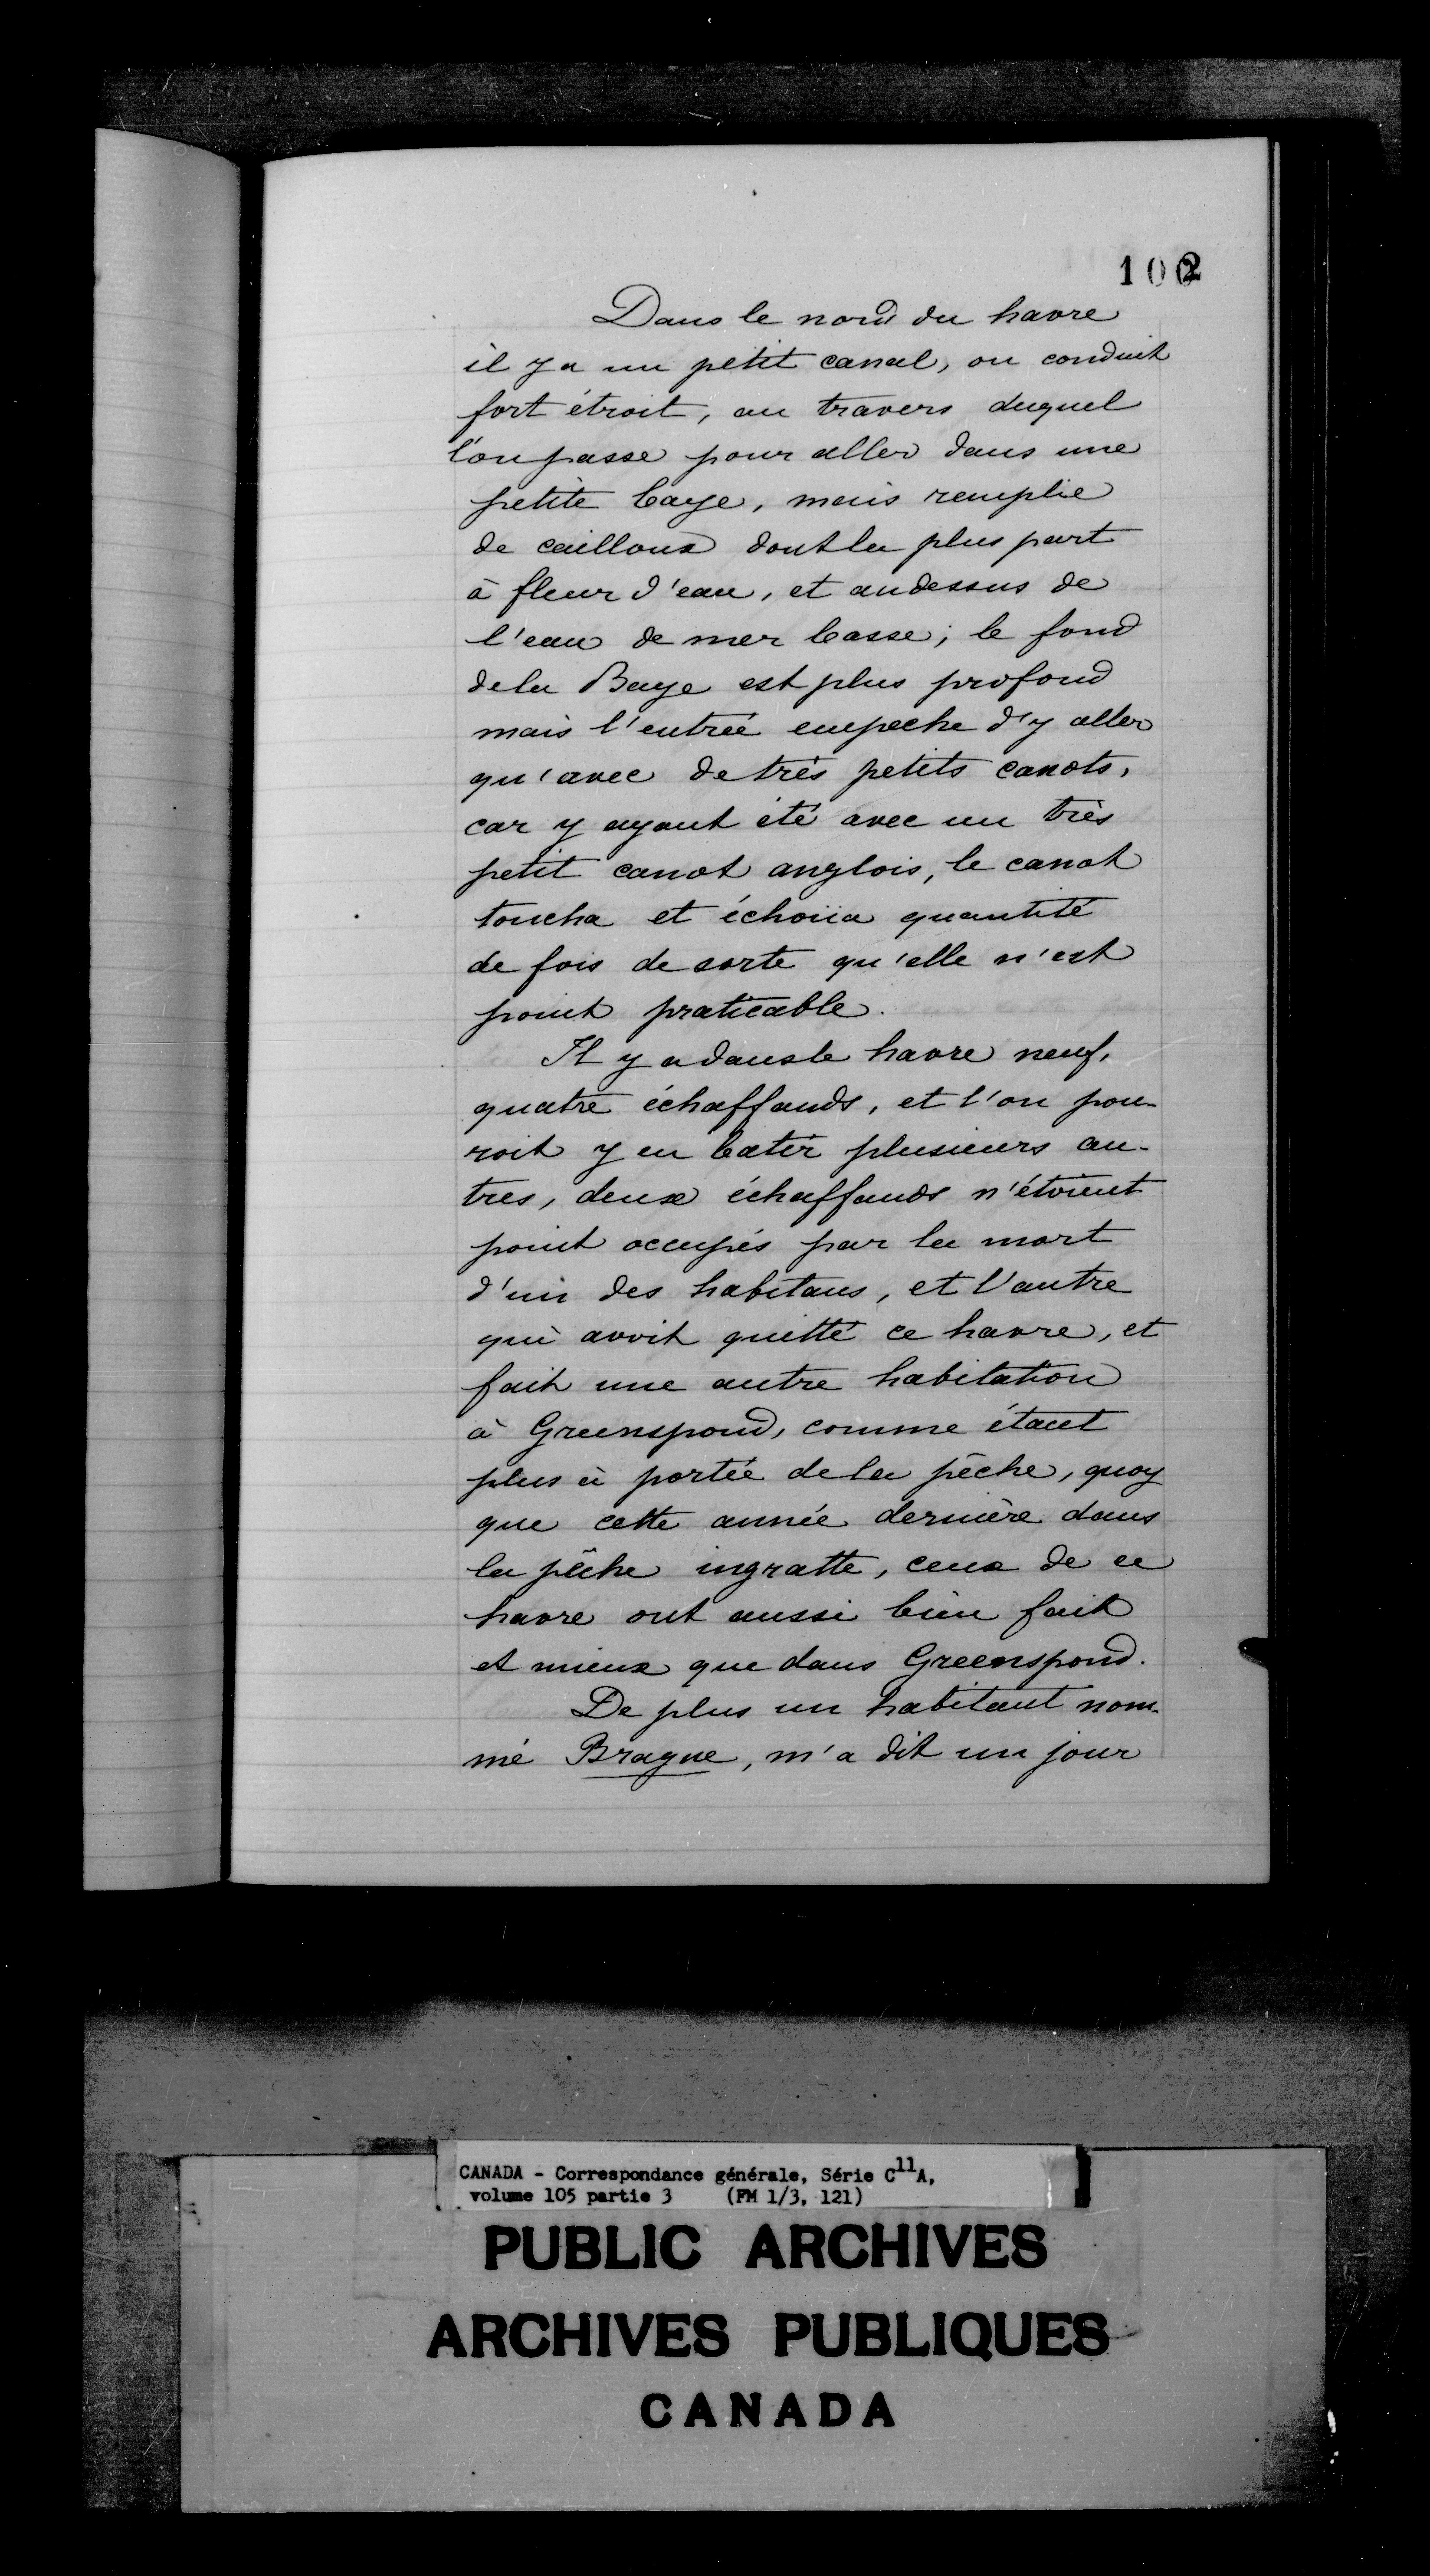 102
Dans le nord du havre
il y a un petit canal, ou conduit
fort étroit, au travers duquel
l'on passe pour aller dans une
petite baye, mais remplie
de cailloux dont la plus part
à fleur d'eau, et audessus de
l'eau de mer basse; le fond
de la Baye est plus profond
mais l'entrée empeche d'y aller
qu'avec de très petits canots,
car y ayant été avec un très
petit canot anglois, le canot
toucha et échoüa quantité
de fois de sorte qu'elle n'est
point praticable.
Il y a dans le havre neuf,
quatre échaffauds, et l'on pou-
roit y en batir plusieurs au-
tres, deux échaffauds n'étoient
point occupés par la mort
d'un des habitans, et l'autre
qui avoit quitté ce havre, et
fait une autre habitation
à Greenspond, comme étant
plus à portée de la pêche, quoy
que cette année dernière dans
la pêche ingratte, ceux de ce
havre ont aussi bien fait
et mieux que dans Greenspond.
De plus un habitant nom-
mé Brague, m'a dit un jour
CANADA - Correspondance générale, Série C11A,
volume 105 partie 3 (FM 1/3, 121)
PUBLIC ARCHIVES
ARCHIVES PUBLIQUES
CANADA